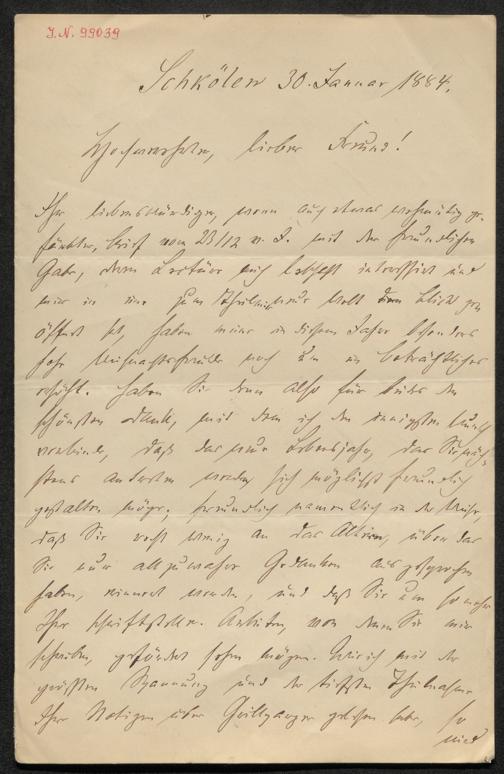 J.N. 99039
Schkölen 30. Januar 1884.
Hochverehrter, lieber Freund!
Ihr liebenswürdiger, wenn auch etwas wehmütig ge-
färbter, Brief vom 23/12 v. J. mit der freundlichen
Gabe, deren Lectüre mich lebhaft interessirt und
mir in eine zum Theil neue Welt den Blick ge-
öffnet hat, haben meine in diesem Jahre besonders
hohe Weihnachtsfreude noch um ein beträchtliches
erhöht. Haben Sie denn also für beides den
schönsten Dank, mit dem ich den innigsten Wunsch
verbinde, daß das neue Lebensjahr, das Sie
antreten werden, sich möglichst freundlich
gestalten möge; freundlich namentlich in der Weise,
daß Sie recht wenig an das Altern, über das
Sie nur allzuwahre Gedanken ausgesprochen
haben, erinnert werden, und daß Sie um so mehr
Ihre schriftstell. Arbeiten, von denen Sie mir
schreiben, gefördert sehen mögen. Wie ich mit der
größten Spannung und der tiefsten Theilnahme
Ihre Notizen über Grillparzer gelesen habe, so
wird